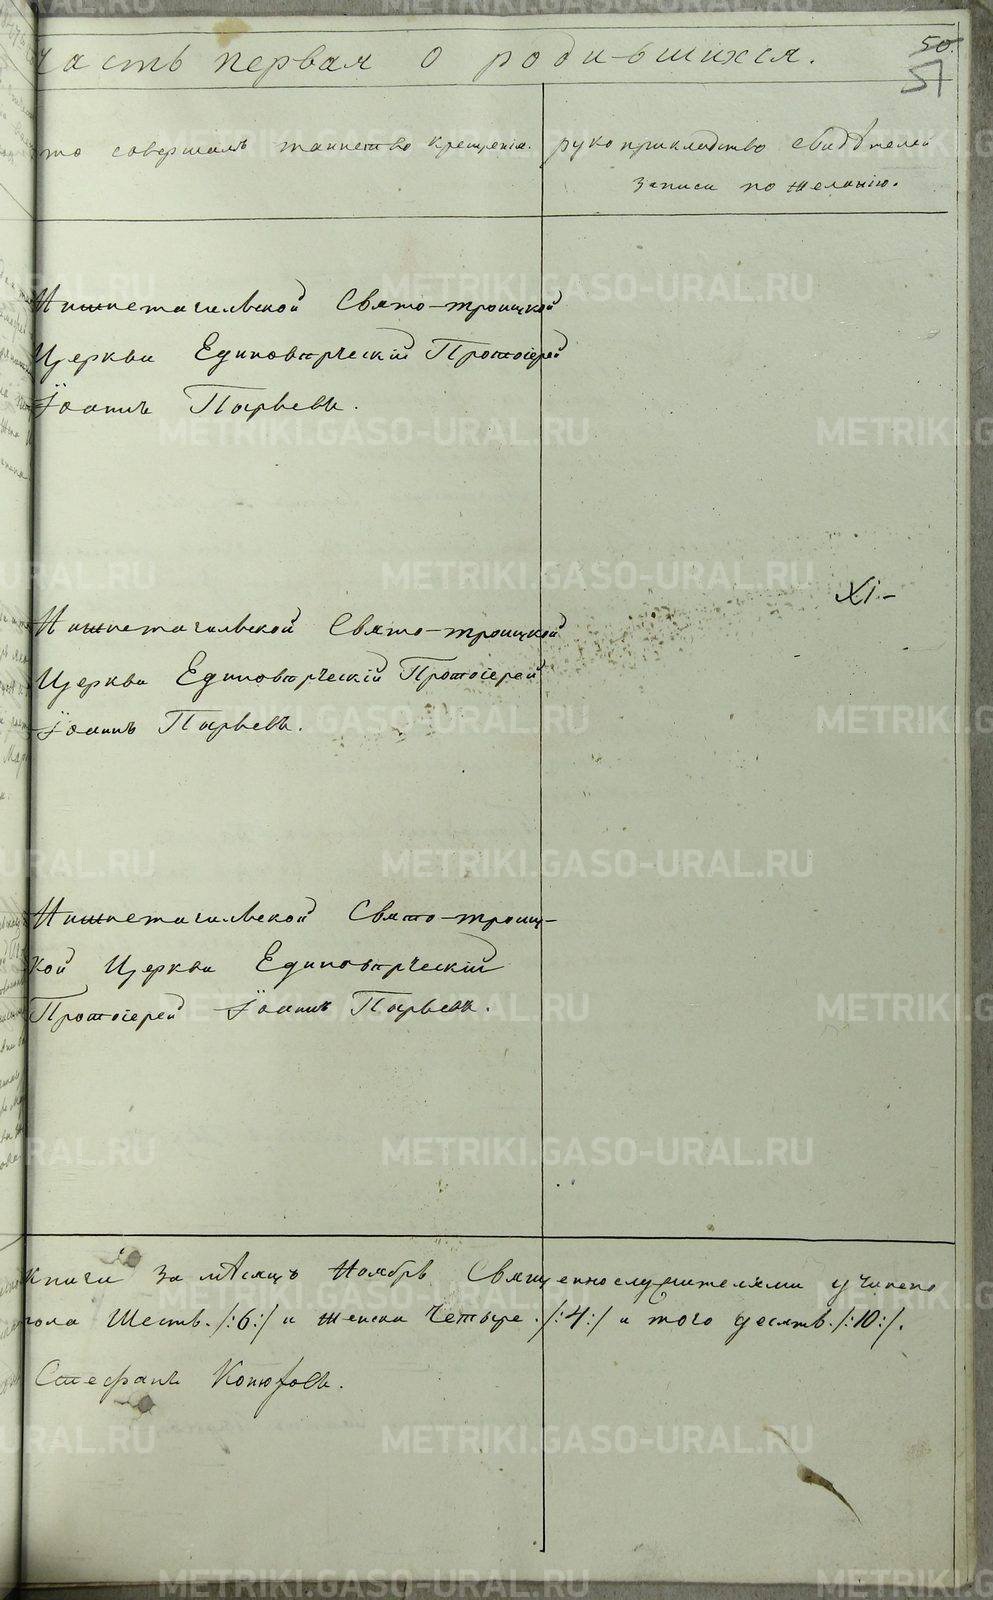 Часть первая о родившихся.
50.
51
то совершалъ таинство крещенія.
рукоприкладство свидѣтелей
записи по желанію.
Нижнетагильской Свято-троицкой
Церкви Единовѣрческій Протоіерей
Іоаннъ Пырьевъ.
Нижнетагильской Свято-троицкой
Церкви Единовѣрческій Протоіерей
Іоаннъ Пырьевъ.
XI-
Нижнетагильской Свято-троиц-
кой Церкви Единовѣрческій
Протоіерей Іоаннъ Пырьевъ.
книги за мѣсяцъ Ноябрь Священнослужителями учинено
пола Шесть. /:6:/ и женска Четыре. /:4:/ и того десять. /:10:/.
Стефанъ Конюховъ.
METRIKI.GASO-URAL.RU